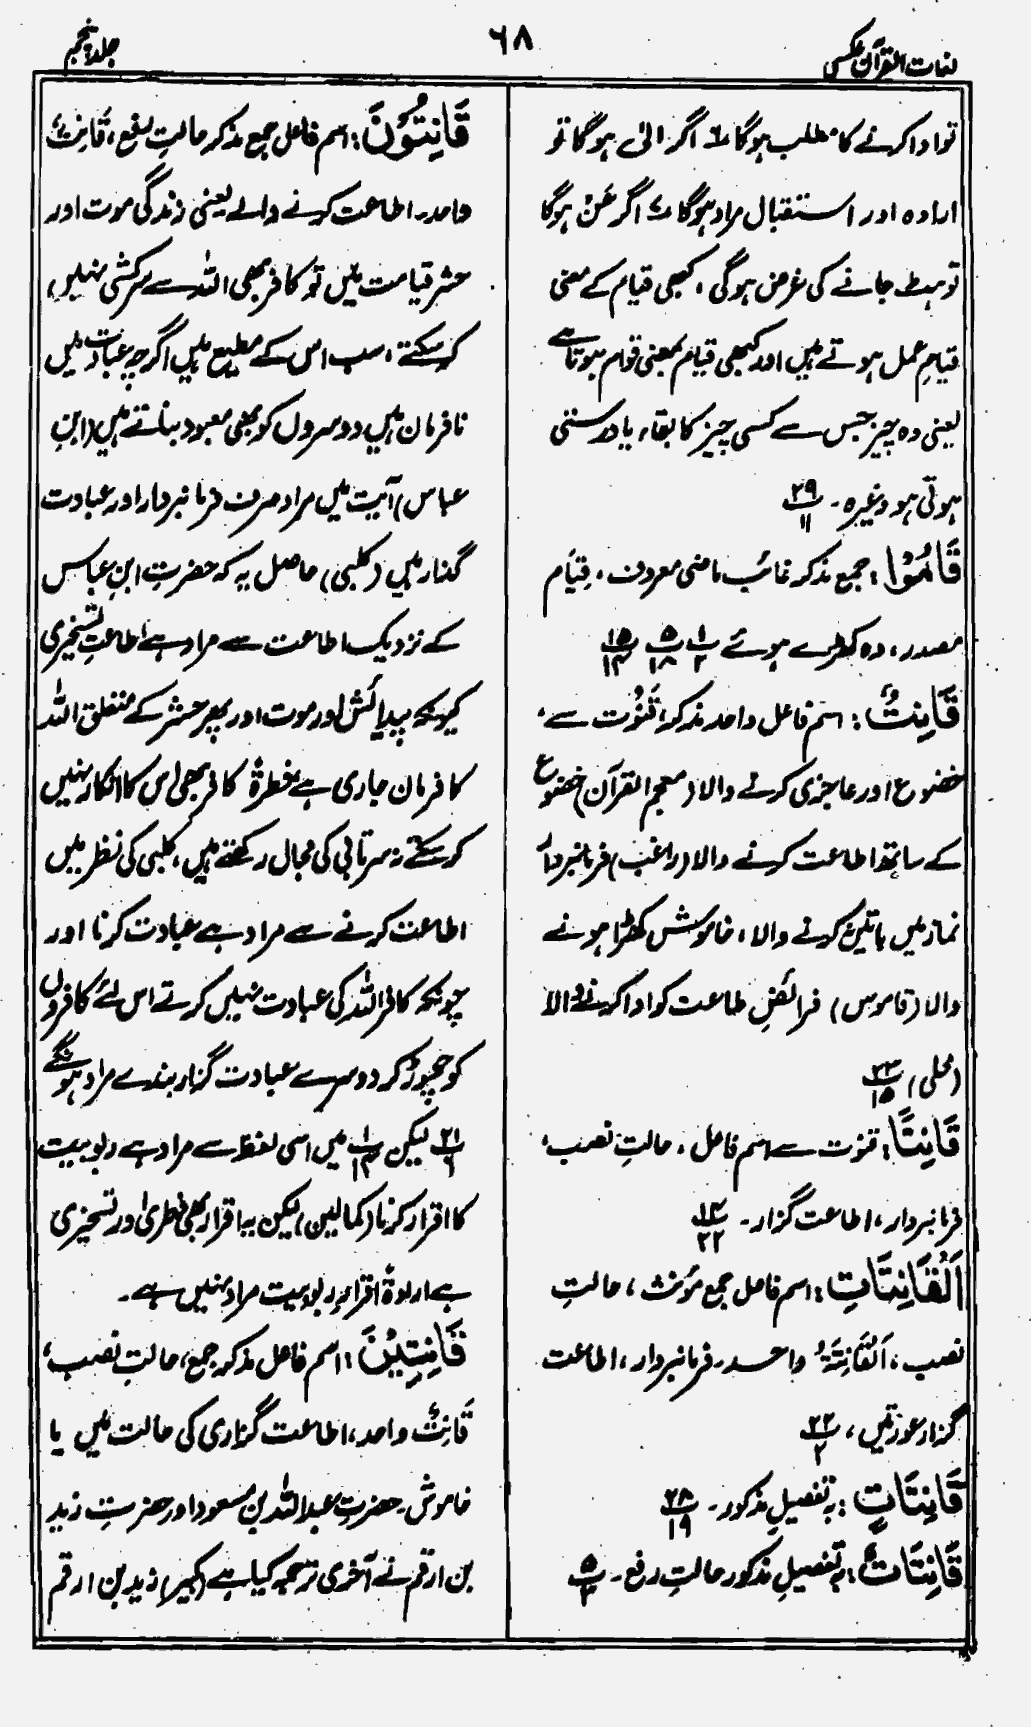 لغات القرآن عکسی
۶۸
جلد پنجم
تو ادا کرنے کا مطلب ہوگا ۶ اگر الیٰ ہوگا تو
ارادہ اور استقبال مراد ہوگا ۷ اگر عَنْ ہوگا
تو ہٹ جانے کی غرض ہوگی، کبھی قیام کے معنی
قیامِ عمل ہوتے ہیں اور کبھی قیام بمعنی قوام ہوتا ہے
یعنی وہ چیز جس سے کسی چیز کا بقاء یا درستی
ہوتی ہو وغیرہ۔ ۲۹/۱۱
قَامُوْا: جمع مذکر غائب ماضی معروف، قِیَام
مصدر، وہ کھڑے ہوئے ۱/۲ ۵/۱۸ ۱۵/۱۴
قَانِتٌ: اسم فاعل واحد مذکر، قُنُوْت سے،
خضوع اور عاجزی کرنے والا (معجم القرآن) خضوع
کے ساتھ اطاعت کرنے والا (راغب) فرمانبردار
نماز میں باتیں نہ کرنے والا، خاموش کھڑا ہونے
والا (قاموس) فرائضِ طاعت کو ادا کرنے والا
(محلی) ۲۳/۱۵
قَانِتًا: قنوت سے اسم فاعل، حالتِ نصب،
فرمانبردار، اطاعت گزار۔ ۱۴/۲۲
اَلْقَانِتَاتِ: اسم فاعل جمع مؤنث، حالتِ
نصب، اَلْقَانِتَۃُ واحد۔ فرمانبردار، اطاعت
گزار عورتیں، ۲۲/۲
قَانِتَاتٍ: بہ تفصیلِ مذکور۔ ۲۸/۱۹
قَانِتَاتٌ: بہ تفصیلِ مذکور حالتِ رفع۔ ۵/۳
قَانِتُوْنَ: اسم فاعل جمع مذکر حالتِ رفع، قَانِتٌ
واحد۔ اطاعت کرنے والے یعنی زندگی موت اور
حشر قیامت میں تو کافر بھی اللہ سے سرکشی نہیں
کر سکتے، سب اس کے مطیع ہیں اگرچہ عبادت میں
نافرمان ہیں دوسروں کو بھی معبود بناتے ہیں (ابنِ
عباس) آیت میں مراد صرف فرمانبردار اور عبادت
گذار ہیں (کلبی) حاصل یہ کہ حضرت ابنِ عباس
کے نزدیک اطاعت سے مراد ہے اطاعتِ تسخیری
کیونکہ پیدائش اور موت اور پھر حشر کے متعلق اللہ
کا فرمان جاری ہے فطرۃً کافر بھی اس کا انکار نہیں
کر سکتے نہ سرتابی کی مجال رکھتے ہیں، کلبی کی نظر میں
اطاعت کرنے سے مراد ہے عبادت کرنا اور
چونکہ کافر اللہ کی عبادت نہیں کرتے اس لئے کافروں
کو چھوڑ کر دوسرے عبادت گزار بندے مراد ہونگے
۲۱/۶ لیکن ۱/۱۴ میں اسی لفظ سے مراد ہے ربوبیت
کا اقرار کرنا (کمالین) لیکن یہ اقرار بھی فطری اور تسخیری
ہے ارادۃً اقرار ربوبیت مراد نہیں ہے۔
قَانِتِیْنَ: اسم فاعل مذکر جمع، حالتِ نصب،
قَانِتٌ واحد، اطاعت گزاری کی حالت میں یا
خاموش۔ حضرت عبداللہ بن مسعود اور حضرت زید
بن ارقم نے آخری ترجمہ کیا ہے (کبیر) زید بن ارقم